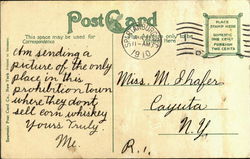 Post Card
This space may be used for
Correspondence
PLACE
STAMP HERE
DOMESTIC
ONE CENT
FOREIGN
TWO CENTS
SPARTANBURG
11-AM
1910
Am sending a
picture of the only
place in this
prohibition town
where they dont
sell corn whiskey
Yours Truly.
Me.
Miss. M. Shafer
Cayuta
N.Y.
R. 1.